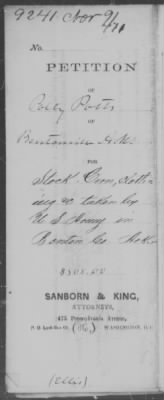 9241 Nov 9/71
No.
PETITION
OF
Polly Potts
OF
Bentonville Arks.
FOR
Stock, Corn, cloth-
ing &c taken by
U S Army in
Benton Co. Arks.
SANBORN & KING,
ATTORNEYS,
475 Pennsylvania Avenue,
P. O. Lock Box 62 WASHINGTON, D.C.
(Ellis)